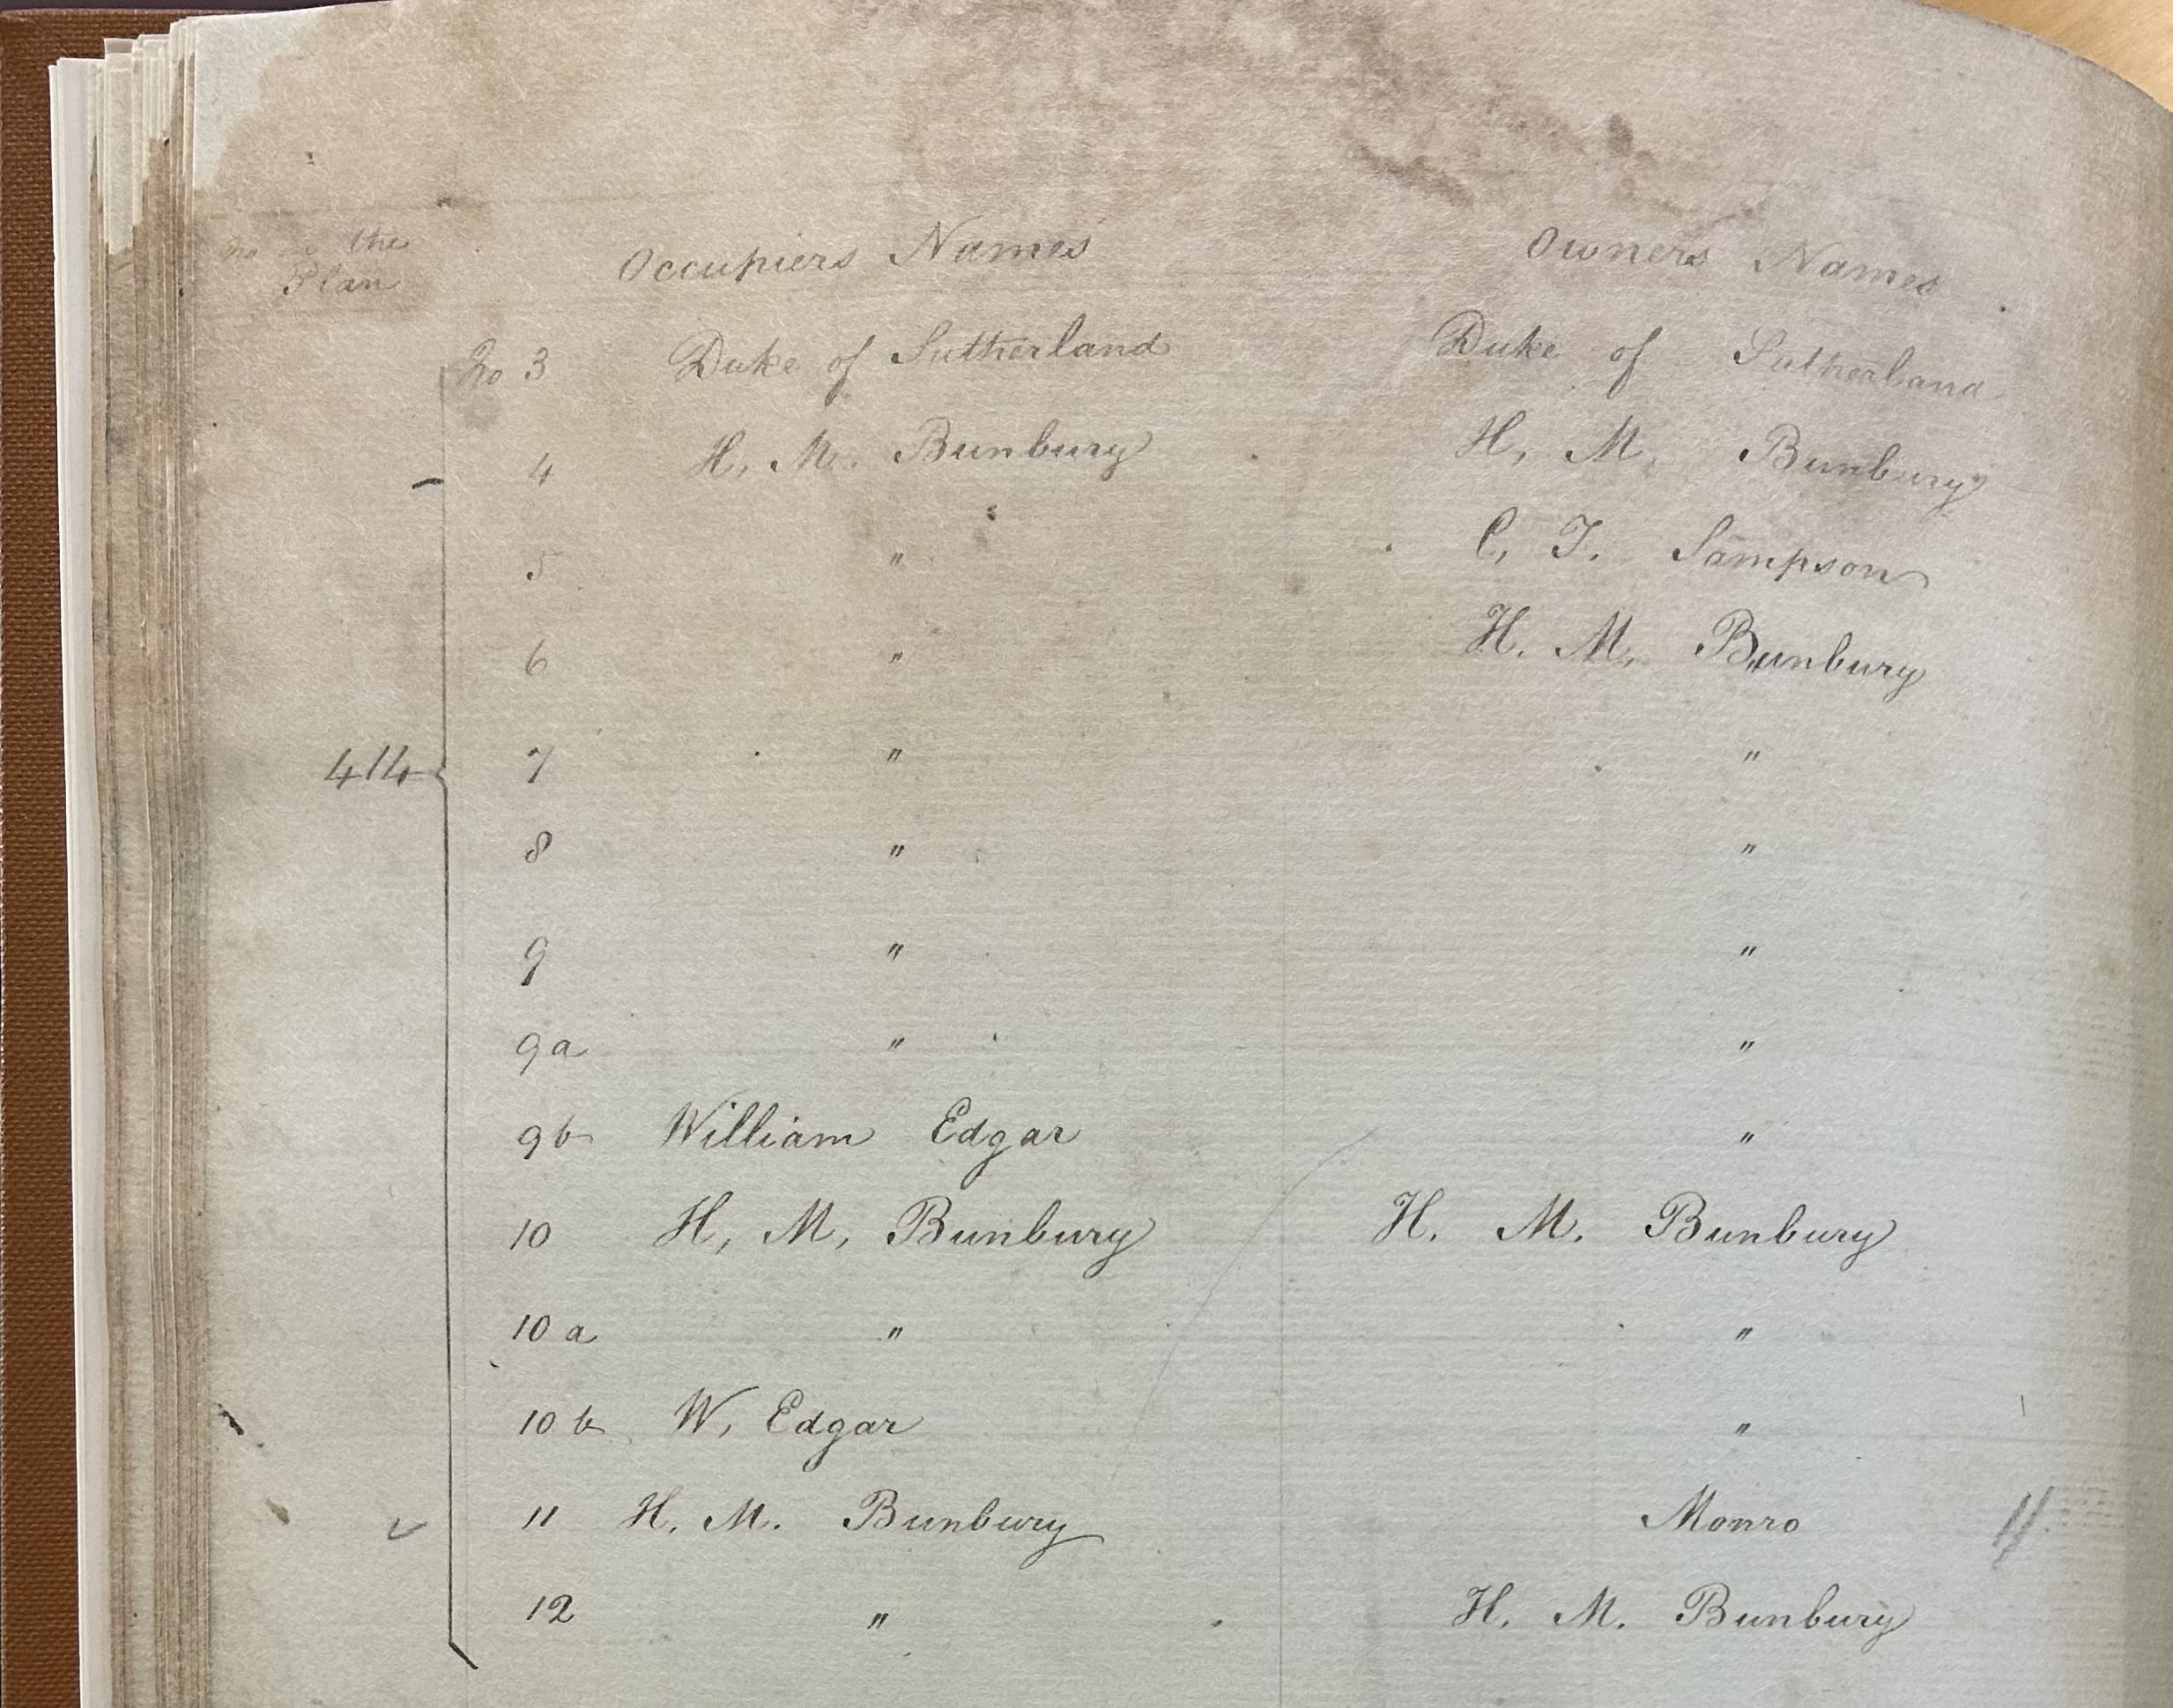 No in the Occupiers Names Owners Names
Plan
No 3 Duke of Sutherland Duke of Sutherland
4 H, M. Bunbury H, M, Bunbury
5 " C, T. Sampson
6 " H. M, Bunbury
414 7 " "
8 " "
9 " "
9a " "
9b William Edgar "
10 H, M, Bunbury H. M. Bunbury
10 a " "
10 b W, Edgar "
11 H. M. Bunbury Monro
12 " H. M. Bunbury